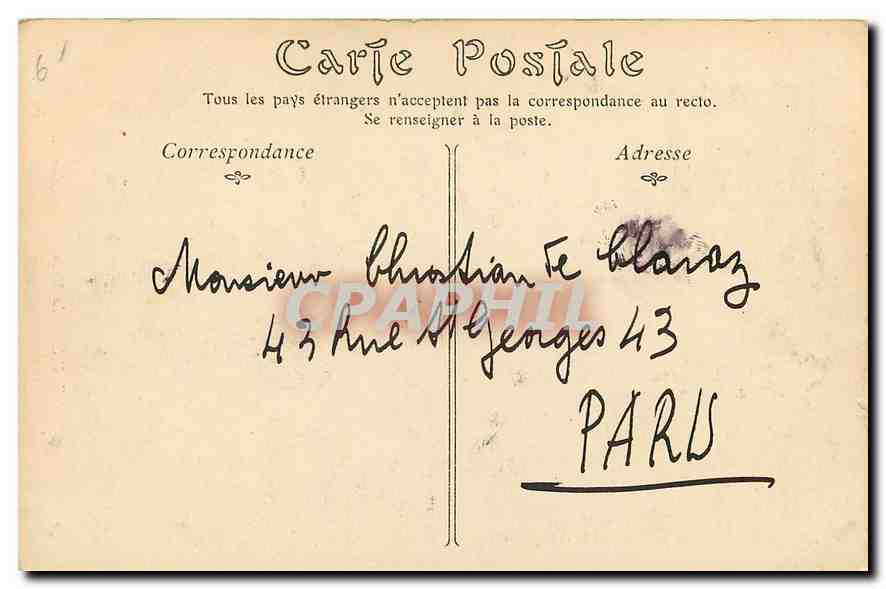 6
Carte Postale
Tous les pays étrangers n'acceptent pas la correspondance au recto.
Se renseigner à la poste.
Correspondance
Adresse
Monsieur Christian de
CPAPHIL
43 Rue St Georges 43
PARIS